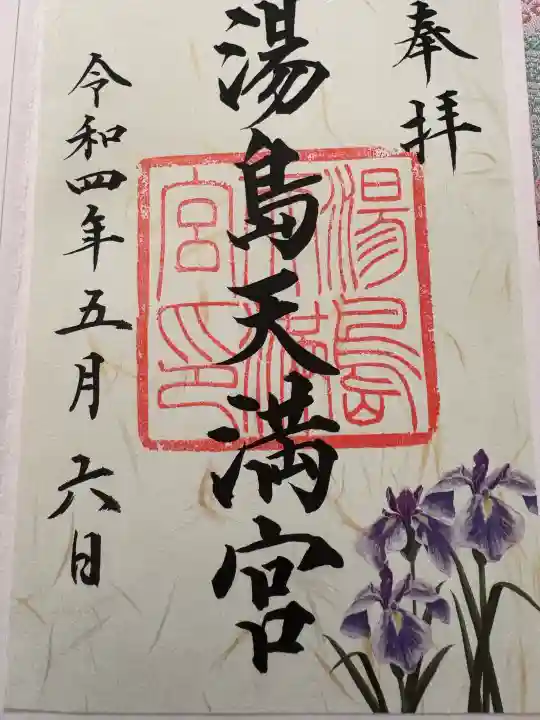 奉拝
湯島天満宮
令和四年五月六日
湯島
天満
宮印